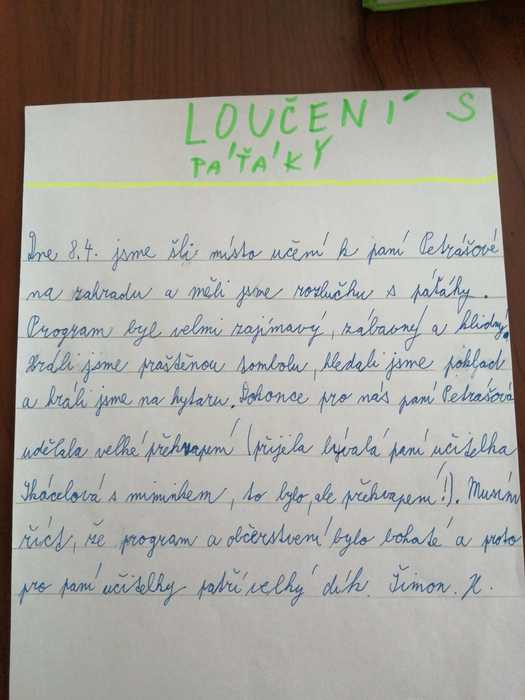 LOUČENÍ S
PÁŤÁKY
Dne 8.4. jsme šli místo učení k paní Petrášové
na zahradu a měli jsme rozlučku s páťáky.
Program byl velmi zajímavý, zábavný a klidný.
Hráli jsme praštěnou tombolu, hledali jsme poklad
a hráli jsme na kytaru. Dokonce pro nás paní Petrášová
udělala velké překvapení (přijela bývalá paní učitelka
Tkáčelová s miminkem, to bylo, ale překvapení!). Musím
říct, že program a občerstvení bylo bohaté a proto
pro paní učitelky patří velký dík. Šimon. H.